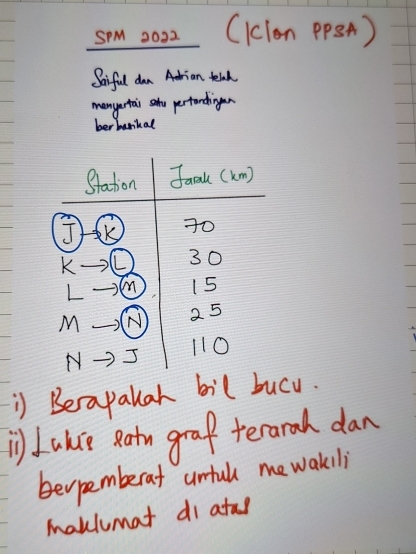 SPM 2022 (Klon PPSA)
Saiful dan Adrian telah
menyertai satu pertandingan
berbasikal
Station Jarak (km)
J → K 70
K → L 30
L → M 15
M → N 25
N → J 110
i) Berapakah bil bucu.
ii) Lukis satu graf terarah dan
berpemberat untuk mewakili
maklumat di atas